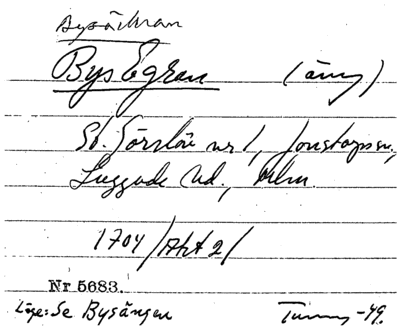 Bysäckran
Bys Egran (äng)
Sk. Görslöv nr 1, Jonstorps sn,
Luggude hd., Mlm.
1704/Akt 2/
Nr 5683.
Läge: Se Bysången Tuney -49.